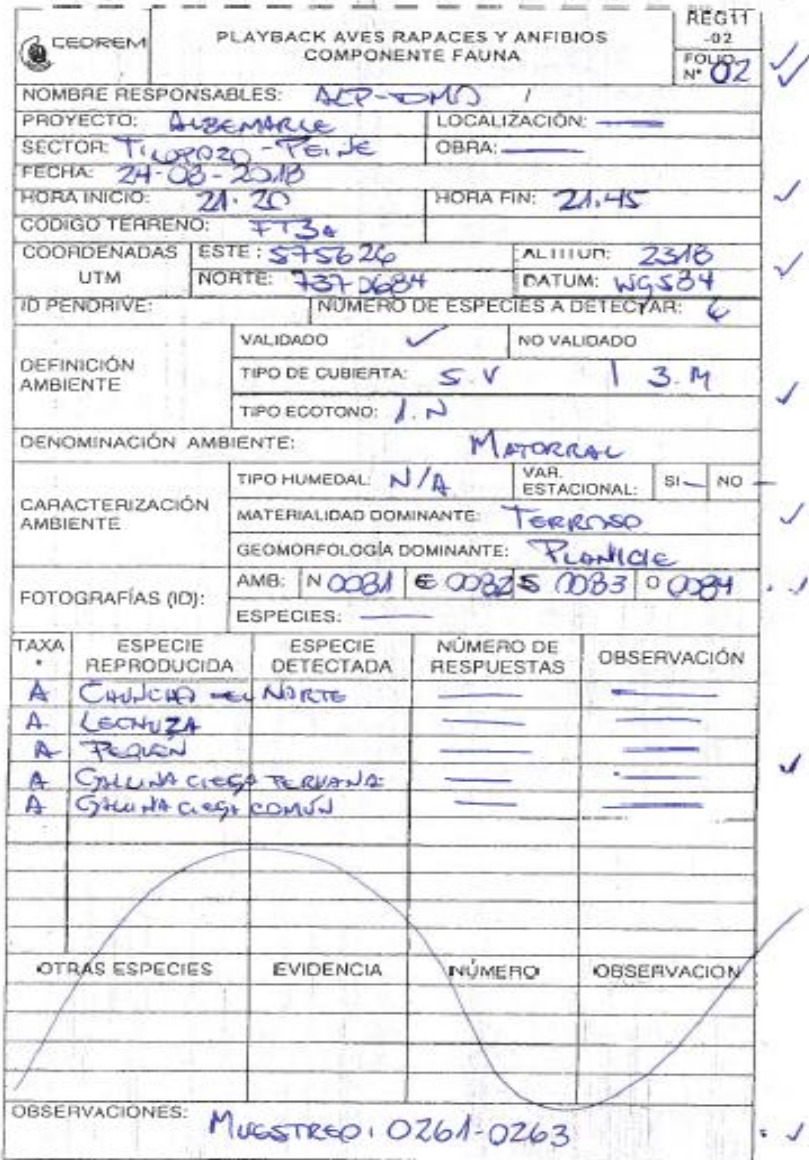 CEDREM
PLAYBACK AVES RAPACES Y ANFIBIOS
COMPONENTE FAUNA
REG11
-02
FOLIO
N° 02
NOMBRE RESPONSABLES: ACP-DMD /
PROYECTO: ALBEMARLE LOCALIZACIÓN: —
SECTOR: TILOPOZO - PEINE OBRA: —
FECHA: 24-08-2018
HORA INICIO: 21.20 HORA FIN: 21.45
CÓDIGO TERRENO: FT34
COORDENADAS UTM
ESTE: 575626 ALTITUD: 2318
NORTE: 7370684 DATUM: WGS84
ID PENDRIVE: NÚMERO DE ESPECIES A DETECTAR:
DEFINICIÓN AMBIENTE
VALIDADO ✓ NO VALIDADO
TIPO DE CUBIERTA: S.V | 3.M
TIPO ECOTONO: 1.N
DENOMINACIÓN AMBIENTE: MATORRAL
CARACTERIZACIÓN AMBIENTE
TIPO HUMEDAL: N/A VAR. ESTACIONAL: SI — NO —
MATERIALIDAD DOMINANTE: TERROSO
GEOMORFOLOGÍA DOMINANTE: PLANICIE
FOTOGRAFÍAS (ID):
AMB: N 0081 E 0082 S 0083 O 0084
ESPECIES: —
TAXA * ESPECIE REPRODUCIDA ESPECIE DETECTADA NÚMERO DE RESPUESTAS OBSERVACIÓN
A CHUNCHO DEL NORTE — —
A LECHUZA — —
A PEQUÉN — —
A GALLINA CIEGA PERUANA — —
A GALLINA CIEGA COMÚN — —
OTRAS ESPECIES EVIDENCIA NÚMERO OBSERVACION
OBSERVACIONES: MUESTREO: 0261-0263